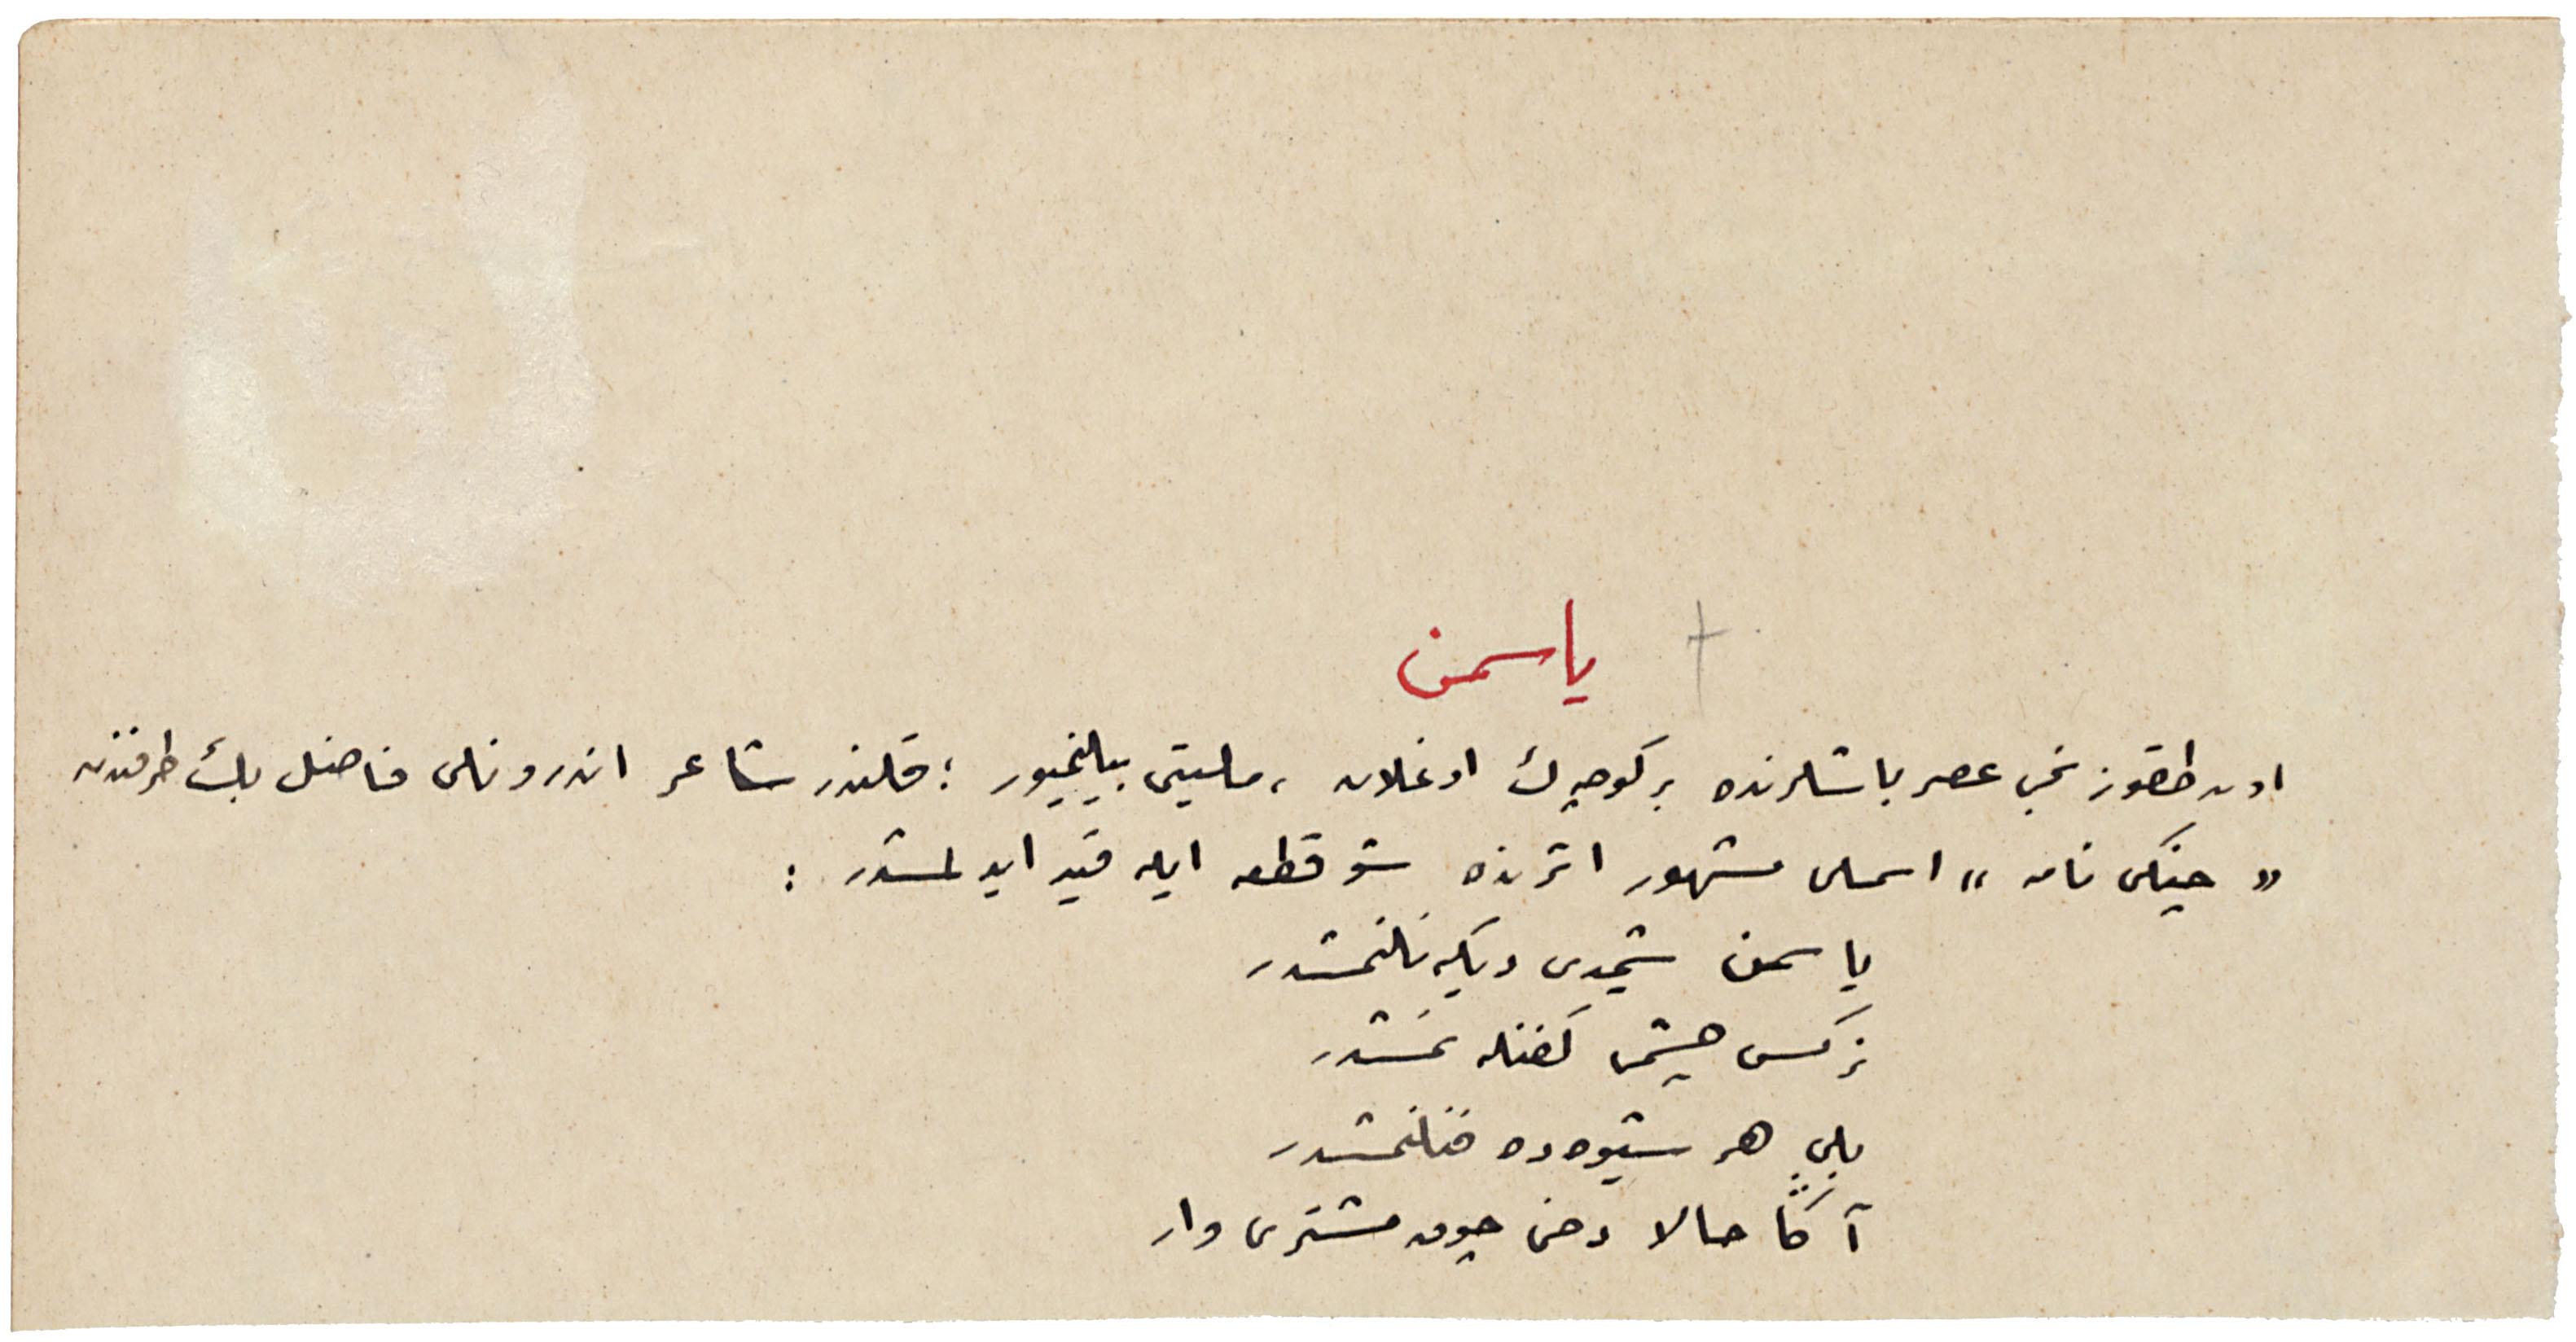 ياسمن
اون طقوزنجی عصر باشلرنده بر كوچك اوغلان ، ملیتی بیلنمیور ؛ قلندر شاعر اندرونلی فاضل بك طرفندن
« چنكی نامه » اسملی مشهور اثرنده شو قطعه ایله قید ایدلمشدر :
ياسمن شیمدی دیكه نلنمشدر
نركس چشمی كفنله نمشدر
بلی هر شیوه ده فنلنمشدر
آكا حالا دخی چوق مشتری وار